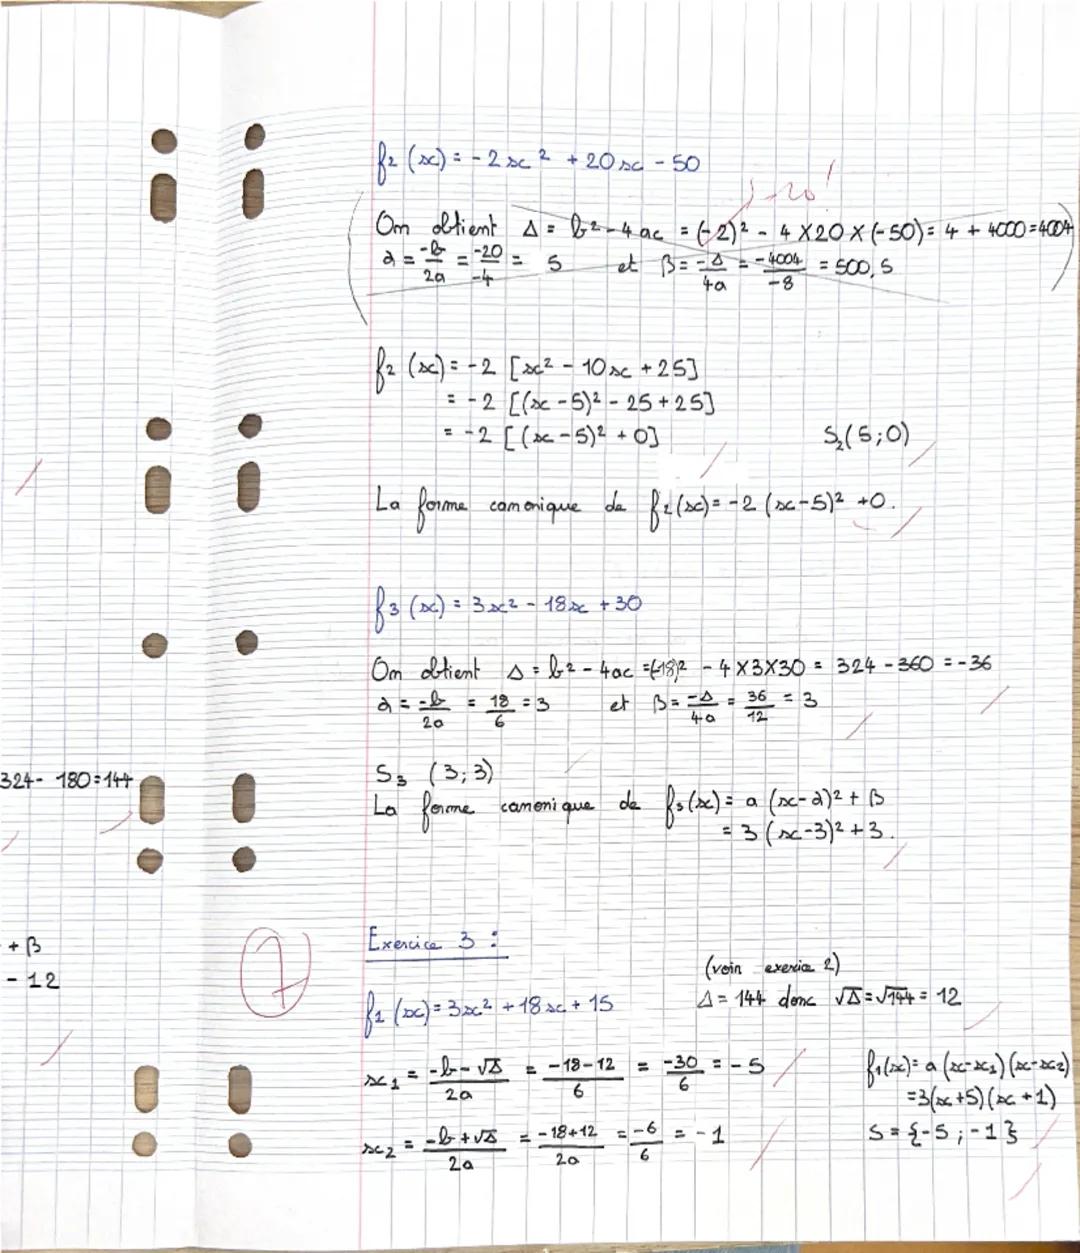 f₂(x) = -2x² + 20x - 50
-20!
On obtient Δ = b² - 4ac = (-2)² - 4 X 20 X (-50) = 4 + 4000 = 4004
α = -b/2a = -20/-4 = 5 et β = -Δ/4a = -4004/-8 = 500,5
f₂(x) = -2 [x² - 10x + 25]
= -2 [(x - 5)² - 25 + 25]
= -2 [(x - 5)² + 0] S₂(5;0)
La forme canonique de f₂(x) = -2 (x-5)² + 0.
f₃(x) = 3x² - 18x + 30
On obtient Δ = b² - 4ac = (-18)² - 4 X 3 X 30 = 324 - 360 = -36
α = -b/2a = 18/6 = 3 et β = -Δ/4a = 36/12 = 3
324 - 180 = 144
S₃ (3;3)
La forme canonique de f₃(x) = a (x-α)² + β
= 3 (x-3)² + 3.
+ β
- 12
7
Exercice 3 :
(voir exercice 2)
f₁(x) = 3x² + 18x + 15 Δ = 144 donc √Δ = √144 = 12
x₁ = -b-√Δ/2a = -18-12/6 = -30/6 = -5 f₁(x) = a (x-x₁)(x-x₂)
= 3(x+5)(x+1)
x₂ = -b+√Δ/2a = -18+12/2a = -6/6 = -1 S = {-5 ; -1}